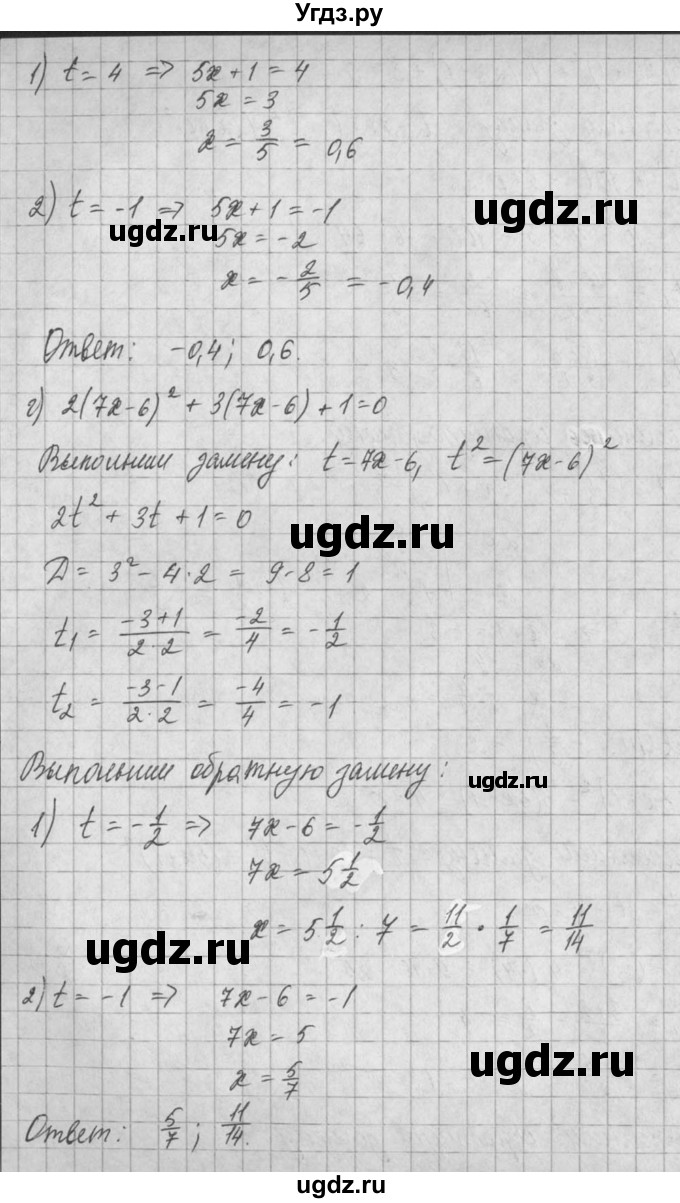 Угдз.ру
1) t = 4 => 5x + 1 = 4
5x = 3
x = 3/5 = 0,6
2) t = -1 => 5x + 1 = -1
ugdz.ru
ugdz.ru
5x = -2
x = -2/5 = -0,4
Ответ: -0,4; 0,6.
г) 2(7x-6)² + 3(7x-6) + 1 = 0
Выполним замену: t = 7x-6, t² = (7x-6)²
2t² + 3t + 1 = 0
ugdz.ru
D = 3² - 4·2 = 9-8 = 1
t₁ = (-3+1)/(2·2) = -2/4 = -1/2
t₂ = (-3-1)/(2·2) = -4/4 = -1
Выполним обратную замену:
ugdz.ru
1) t = -1/2 => 7x-6 = -1/2
7x = 5 1/2
x = 5 1/2 : 7 = 11/2 · 1/7 = 11/14
ugdz.ru
2) t = -1 => 7x-6 = -1
7x = 5
ugdz.ru
x = 5/7
Ответ: 5/7; 11/14.
ugdz.ru